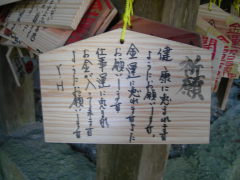 祈願
健康に恵まれます
ようにお願いします
金運に恵まれますように
お願いします
仕事運に恵まれ
お金が入ってきます
ようにお願いします
Y H